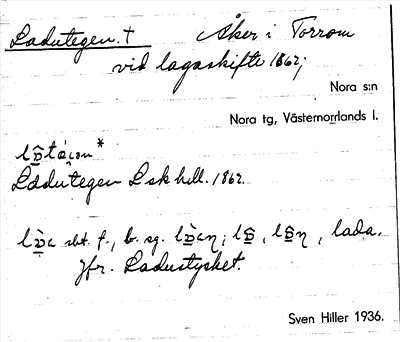 Ladutegen. † Åker i Torrom
vid lagaskifte 1862;
Nora s:n
Nora tg, Västernorrlands l.
Lådutegen L sk hdl. 1862.
sbt. f., b. sg. lada.
Jfr. Ladustycket.
Sven Hiller 1936.